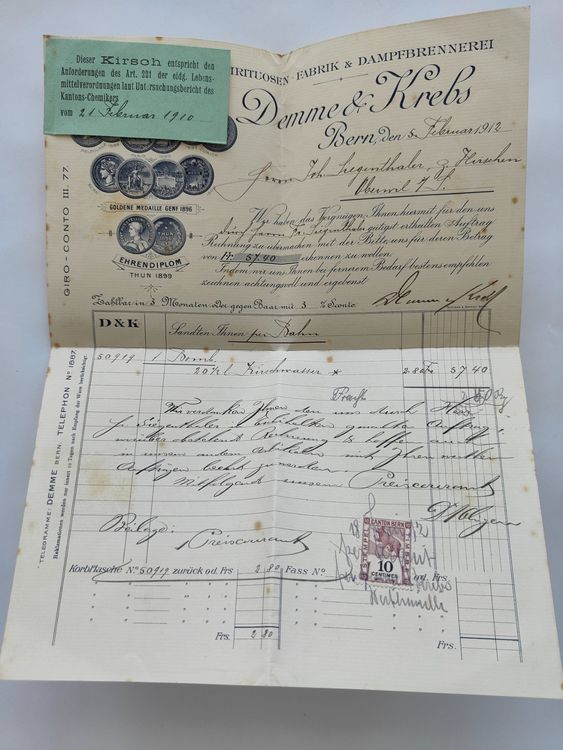 Dieser Kirsch entspricht den
Anforderungen des Art. 221 der eidg. Lebens-
mittelverordnungen laut Untersuchungsbericht des
Kantons-Chemikers
vom 21. Februar 1910
SPIRITUOSEN-FABRIK & DAMPFBRENNEREI
Demme & Krebs
Bern, den 5. Februar 1912
Herrn Joh. Siegenthaler, z. Hirschen
Oberwil i/S.
GOLDENE MEDAILLE GENF 1896
EHRENDIPLOM
THUN 1899
GIRO-CONTO III. 77.
Wir haben das Vergnügen, Ihnen hiermit für den uns
durch Herrn Siegenthaler gütigst erteilten Auftrag
Rechnung zu übermachen mit der Bitte, uns für deren Betrag
von Fr. 57.40 erkennen zu wollen.
Indem wir uns Ihnen bei fernerem Bedarf bestens empfehlen
zeichnen achtungsvoll und ergebenst
Demme & Krebs
Zahlbar in 3 Monaten oder gegen Baar mit 3 % Sconto.
D & K
Sandten Ihnen per Bahn
50919 1 Bonb.
20½ l Kirschwasser * 2.80 Fr. 57.40
Fracht
Wir verdanken Ihnen den uns durch Herrn
Siegenthaler
obstehend Rechnung & hoffen auch
in unsern andern Artikeln mit Ihren weitern
Aufträgen beehrt zu werden.
Mitfolgend unsern Preiscourant
Beilage:
1 Preiscourant
TELEGRAMME: DEMME BERN. TELEPHON No 1687.
Reklamationen werden nur innert 10 Tagen nach Empfang der Ware berücksichtigt.
STEMPEL
CANTON BERN
TIMBRE
10
CENTIMEN
Korbflasche No. 50919 zurück od. Frs 2 80 Fass No od. Frs.
Frs. 2 80
Frs.